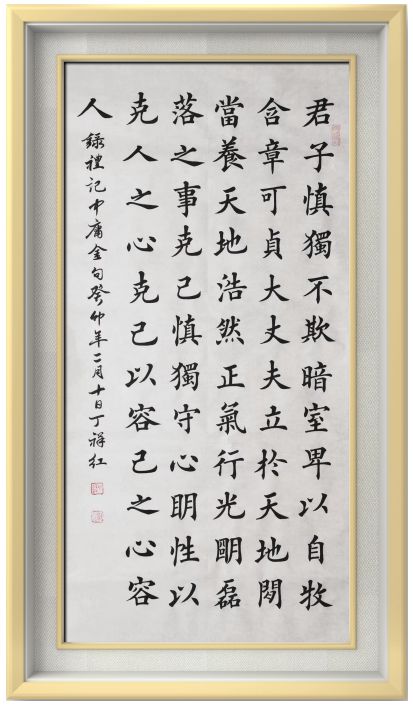 君子慎獨不欺暗室卑以自牧
含章可貞大丈夫立於天地間
當養天地浩然正氣行光眀磊
落之事克己慎獨守心眀性以
克人之心克己以容己之心容
人 錄禮記中庸金句癸卯年二月十日丁祥红